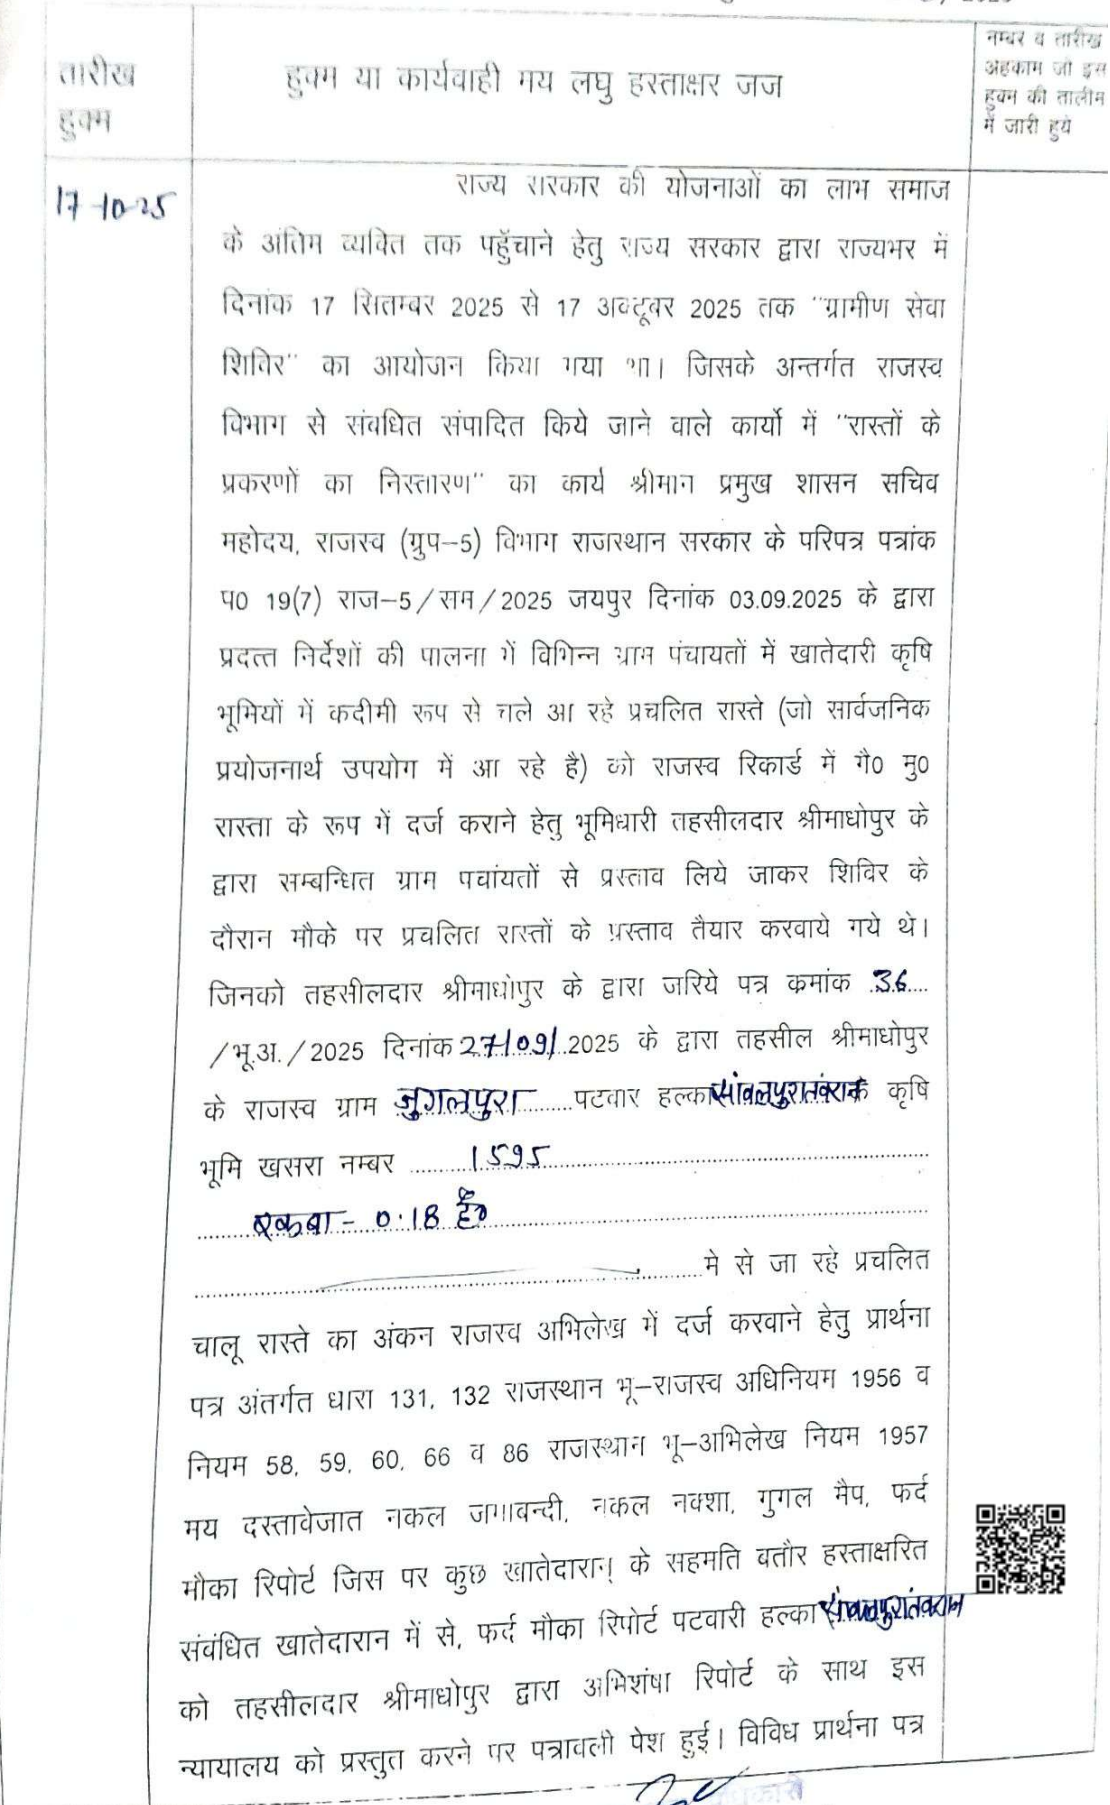 तारीख
हुक्म
हुक्म या कार्यवाही मय लघु हस्ताक्षर जज
नम्बर व तारीख
अहकाम जो इस
हुक्म की तालीम
में जारी हुये
17-10-25
राज्य सरकार की योजनाओं का लाभ समाज
के अंतिम व्यक्ति तक पहुँचाने हेतु राज्य सरकार द्वारा राज्यभर में
दिनांक 17 सितम्बर 2025 से 17 अक्टूबर 2025 तक "ग्रामीण सेवा
शिविर" का आयोजन किया गया था। जिसके अन्तर्गत राजस्व
विभाग से संबधित संपादित किये जाने वाले कार्यो में "रास्तों के
प्रकरणों का निस्तारण" का कार्य श्रीमान प्रमुख शासन सचिव
महोदय, राजस्व (ग्रुप–5) विभाग राजस्थान सरकार के परिपत्र पत्रांक
प0 19(7) राज–5/सम/2025 जयपुर दिनांक 03.09.2025 के द्वारा
प्रदत्त निर्देशों की पालना में विभिन्न ग्राम पंचायतों में खातेदारी कृषि
भूमियों में कदीमी रूप से चले आ रहे प्रचलित रास्ते (जो सार्वजनिक
प्रयोजनार्थ उपयोग में आ रहे है) को राजस्व रिकार्ड में गै0 मु0
रास्ता के रूप में दर्ज कराने हेतु भूमिधारी तहसीलदार श्रीमाधोपुर के
द्वारा सम्बन्धित ग्राम पचांयतों से प्रस्ताव लिये जाकर शिविर के
दौरान मौके पर प्रचलित रास्तों के प्रस्ताव तैयार करवाये गये थे।
जिनको तहसीलदार श्रीमाधोपुर के द्वारा जरिये पत्र कमांक 36
/भू.अ./2025 दिनांक 27/09/2025 के द्वारा तहसील श्रीमाधोपुर
के राजस्व ग्राम जुगलपुरा पटवार हल्का सांवलपुरातंवरान के कृषि
भूमि खसरा नम्बर 1595
रकबा – 0.18 है0
मे से जा रहे प्रचलित
चालू रास्ते का अंकन राजस्व अभिलेख में दर्ज करवाने हेतु प्रार्थना
पत्र अंतर्गत धारा 131, 132 राजस्थान भू–राजस्व अधिनियम 1956 व
नियम 58, 59, 60, 66 व 86 राजस्थान भू–अभिलेख नियम 1957
मय दस्तावेजात नकल जमाबन्दी, नकल नक्शा, गुगल मैप, फर्द
मौका रिपोर्ट जिस पर कुछ खातेदारान् के सहमति बतौर हस्ताक्षरित
संबंधित खातेदारान में से, फर्द मौका रिपोर्ट पटवारी हल्का सांवलपुरातंवरान
को तहसीलदार श्रीमाधोपुर द्वारा अभिशंषा रिपोर्ट के साथ इस
न्यायालय को प्रस्तुत करने पर पत्रावली पेश हुई। विविध प्रार्थना पत्र